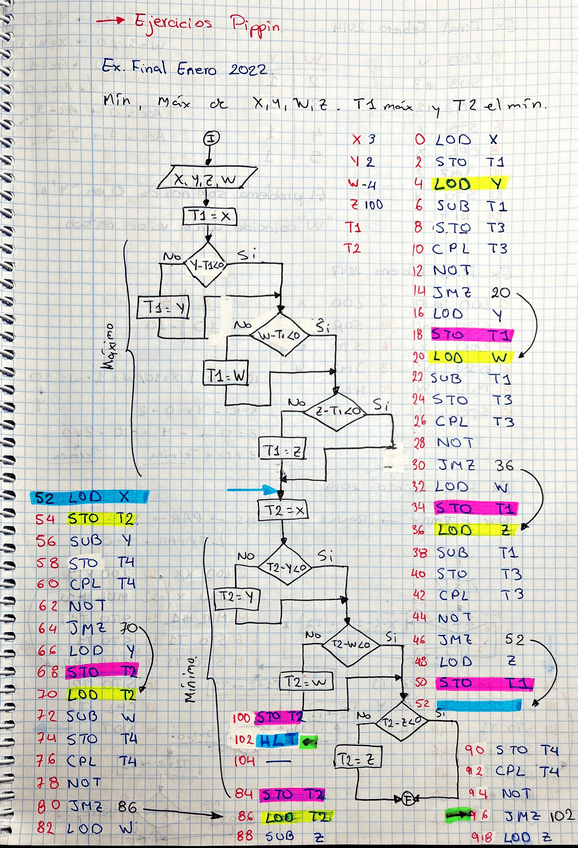 → Ejercicios Pippin.
Ex. Final Enero 2022.
Mín, Máx de X,Y,W,Z. T1 máx y T2 el mín.
I
X,Y,Z,W
T1=X
Y-T1<0
No
Si
T1=Y
W-T1<0
No
Si
T1=W
Z-T1<0
No
Si
T1=Z
Máximo
T2=X
T2-Y<0
No
Si
T2=Y
T2-W<0
No
Si
T2=W
T2-Z<0
No
Si
T2=Z
F
Mínimo
X 3
Y 2
W -4
Z 100
T1
T2
0 LOD X
2 STO T1
4 LOD Y
6 SUB T1
8 STO T3
10 CPL T3
12 NOT
14 JMZ 20
16 LOD Y
18 STO T1
20 LOD W
22 SUB T1
24 STO T3
26 CPL T3
28 NOT
30 JMZ 36
32 LOD W
34 STO T1
36 LOD Z
38 SUB T1
40 STO T3
42 CPL T3
44 NOT
46 JMZ 52
48 LOD Z
50 STO T1
52
52 LOD X
54 STO T2
56 SUB Y
58 STO T4
60 CPL T4
62 NOT
64 JMZ 70
66 LOD Y
68 STO T2
70 LOD T2
72 SUB W
74 STO T4
76 CPL T4
78 NOT
80 JMZ 86
82 LOD W
84 STO T2
86 LOD T2
88 SUB Z
90 STO T4
92 CPL T4
94 NOT
96 JMZ 102
98 LOD Z
100 STO T2
102 HLT
104 —